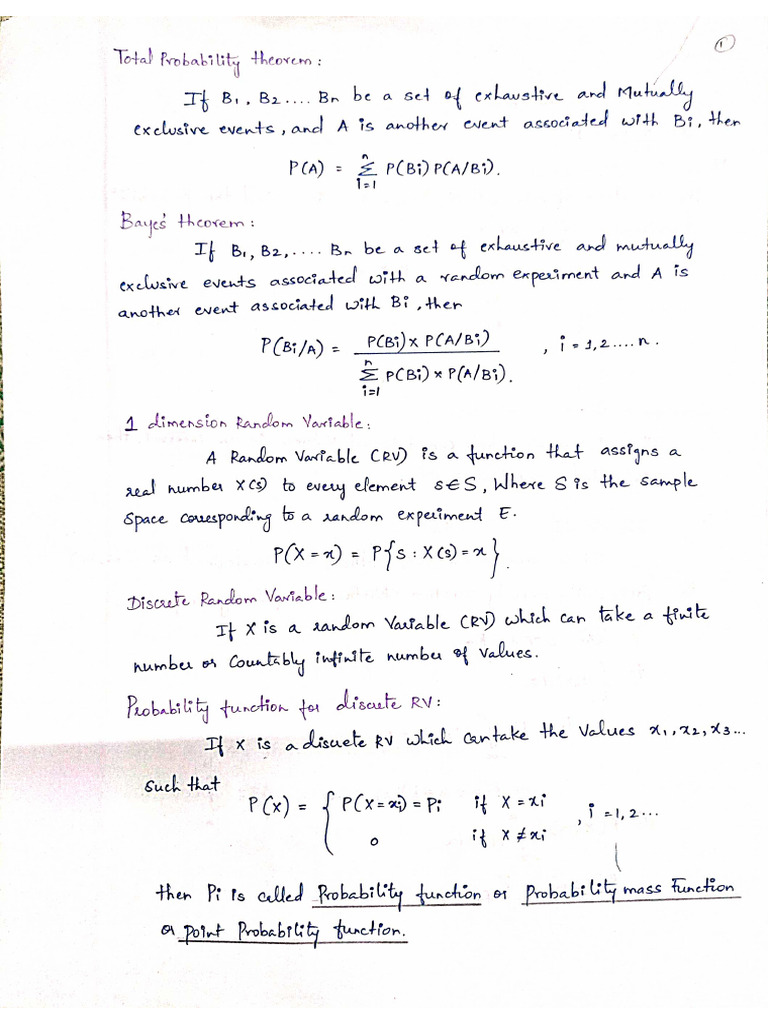 1
Total Probability theorem:
If B1, B2.... Bn be a set of exhaustive and Mutually
exclusive events, and A is another event associated with Bi, then
P(A) = n Σ i=1 P(Bi) P(A/Bi).
Bayes' theorem:
If B1, B2, .... Bn be a set of exhaustive and mutually
exclusive events associated with a random experiment and A is
another event associated with Bi, then
P(Bi/A) = P(Bi) x P(A/Bi) , i = 1,2 .... n.
n Σ i=1 P(Bi) x P(A/Bi).
1 dimension Random Variable:
A Random Variable (RV) is a function that assigns a
real number X(s) to every element s∈S, Where S is the sample
Space corresponding to a random experiment E.
P(X = x) = P{s : X(s) = x}.
Discrete Random Variable:
If X is a random Variable (RV) which can take a finite
number or Countably infinite number of values.
Probability function for discrete RV:
If X is a discrete RV which can take the Values x1, x2, x3...
Such that
P(x) = { P(X = xi) = Pi if X = xi , i = 1, 2 ...
0 if X ≠ xi
then Pi is called Probability function or Probability mass Function
or point Probability function.